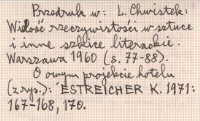 Przedruk w: L. Chwistek:
Wielość rzeczywistości w sztuce
i inne szkice literackie.
Warszawa 1960 (s. 77-88).
O owym projekcie hotelu
(z rys.): ESTREICHER K. 1971:
167-168, 170.